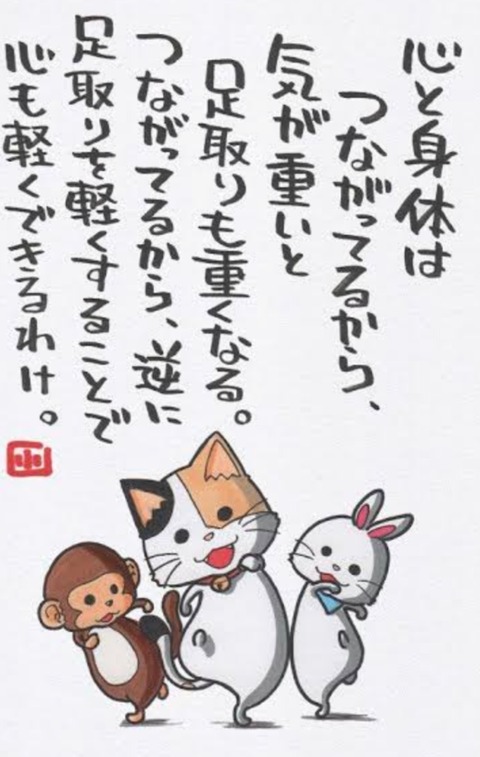 心と身体は
つながってるから、
気が重いと
足取りも重くなる。
つながってるから、逆に
足取りを軽くすることで
心も軽くできるわけ。